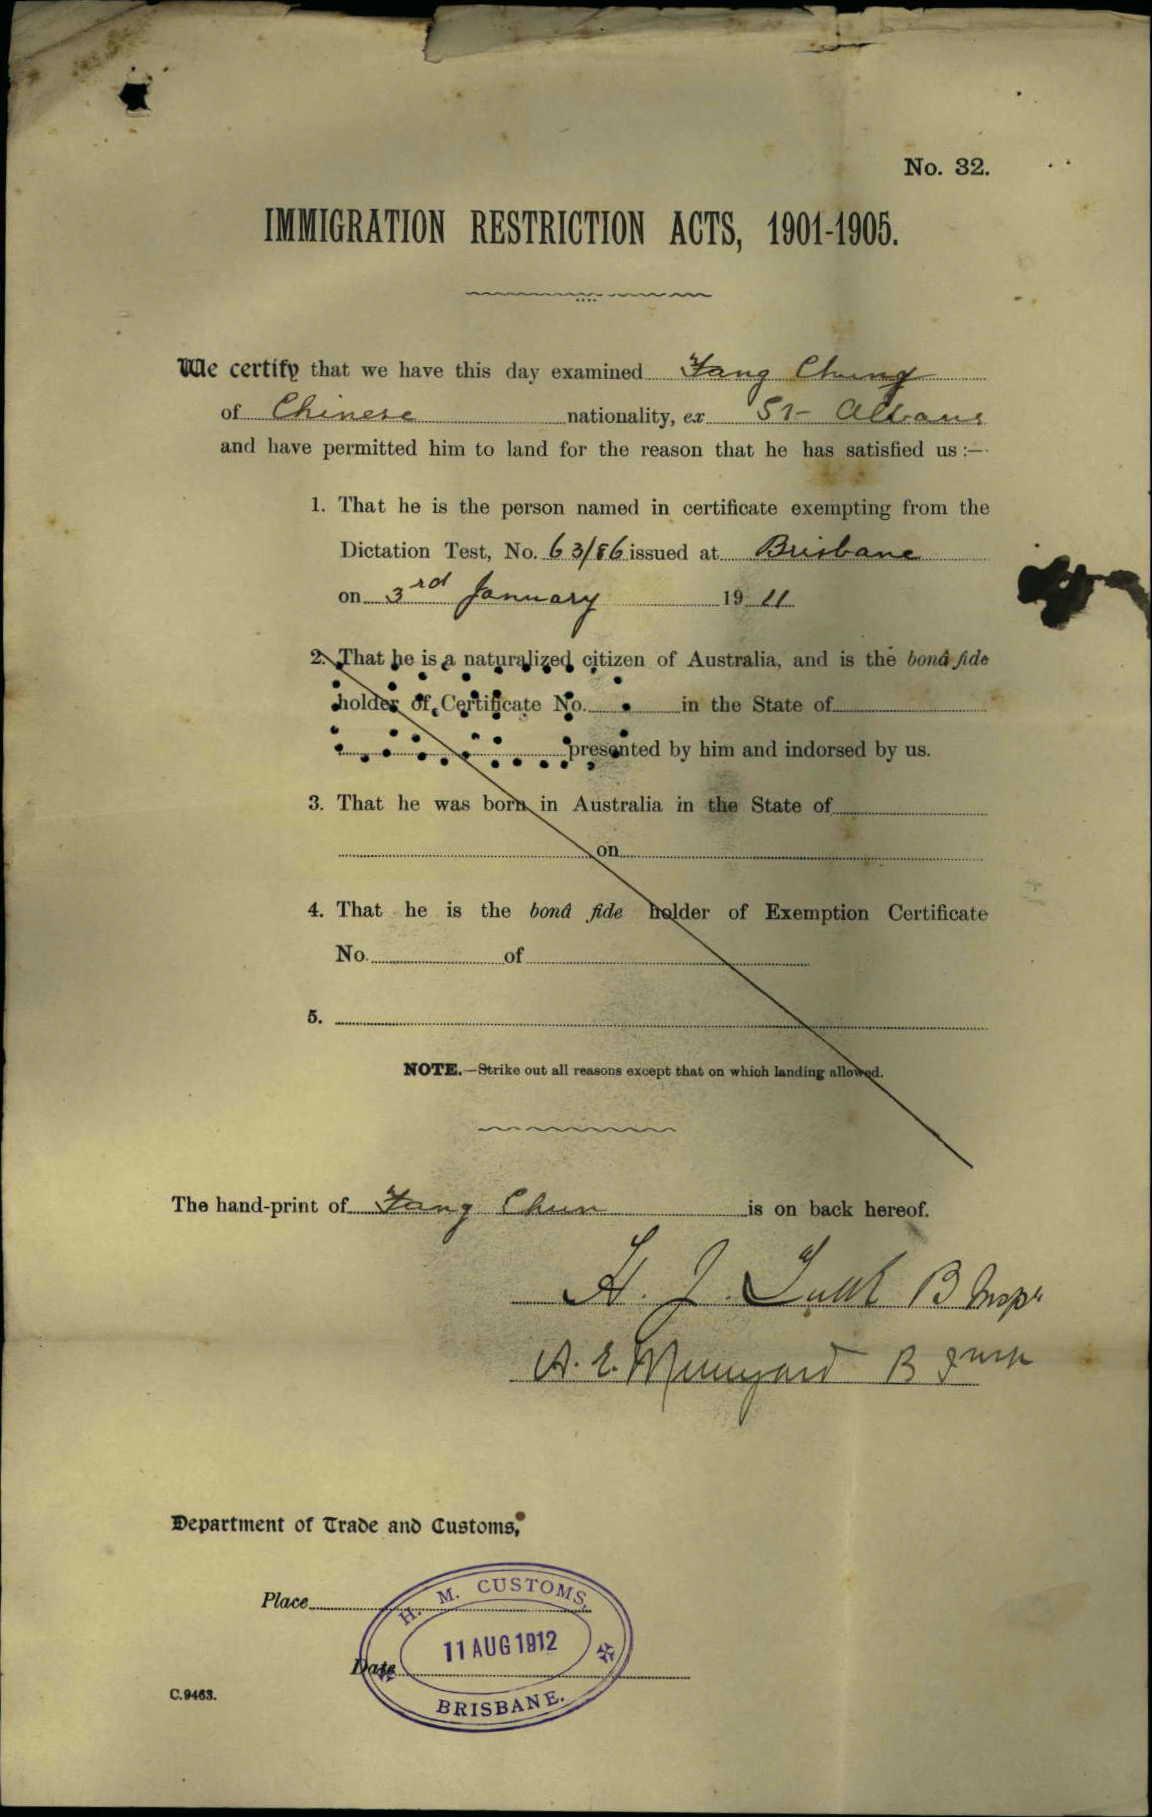 No. 32.
IMMIGRATION RESTRICTION ACTS, 1901-1905.
We certify that we have this day examined Fang Chung
of Chinese nationality, ex St Albans
and have permitted him to land for the reason that he has satisfied us :—
1. That he is the person named in certificate exempting from the
Dictation Test, No. 63/86 issued at Brisbane
on 3rd January 1911
2. That he is a naturalized citizen of Australia, and is the bonâ fide
holder of Certificate No. in the State of
presented by him and indorsed by us.
3. That he was born in Australia in the State of
on
4. That he is the bonâ fide holder of Exemption Certificate
No. of
5.
NOTE.—Strike out all reasons except that on which landing allowed.
The hand-print of Fang Chun is on back hereof.
H. J. B Inspr
A. E. B Insp
Department of Trade and Customs,
Place
H. M. CUSTOMS,
11 AUG 1912
Date
BRISBANE.
C.9463.